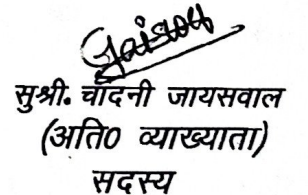 सुश्री. चाँदनी जायसवाल
(अति० व्याख्याता)
सदस्य